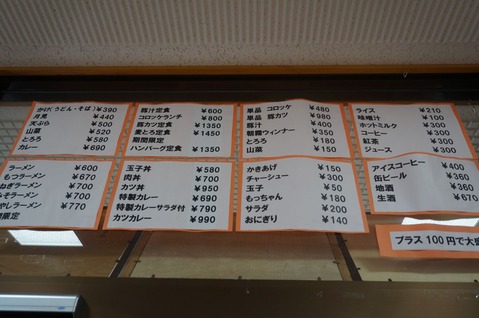 かけ(うどん・そば) ¥390
月見 ¥440
天ぷら ¥500
山菜 ¥520
とろろ ¥580
カレー ¥690
豚汁定食 ¥600
コロッケランチ ¥800
豚カツ定食 ¥1350
麦とろ定食 ¥1450
期間限定
ハンバーグ定食 ¥1350
単品 コロッケ ¥480
単品 豚カツ ¥980
豚汁 ¥400
朝霧ウィンナー ¥350
とろろ ¥180
山菜 ¥150
ライス ¥210
味噌汁 ¥100
ホットミルク ¥300
コーヒー ¥300
紅茶 ¥300
ジュース ¥300
ラーメン ¥600
もつラーメン ¥670
ねぎラーメン ¥700
みそラーメン ¥700
やしラーメン ¥770
限定
玉子丼 ¥580
肉丼 ¥700
カツ丼 ¥950
特製カレー ¥690
特製カレーサラダ付 ¥790
カツカレー ¥990
かきあげ ¥150
チャーシュー ¥300
玉子 ¥50
もっちゃん ¥180
サラダ ¥200
おにぎり ¥140
アイスコーヒー ¥400
缶ビール ¥360
地酒 ¥360
生酒 ¥670
プラス100円で大盛